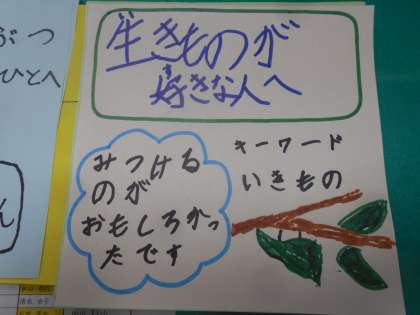 生きものが
好きな人へ
みつける
のが
おもしろかっ
たです
キーワード
いきもの
ぶつ
ひとへ
ん